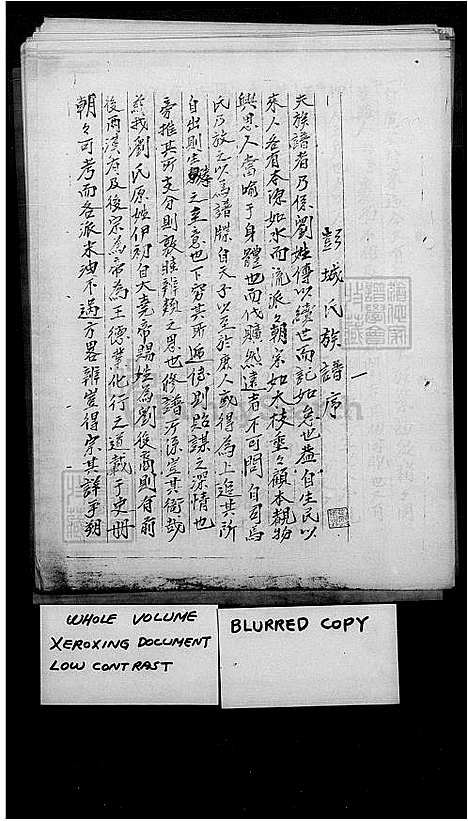 彭城氏族譜序
夫族譜者乃係劉姓傳以續世而記如忘也蓋自生民以
來人各有本源如水而流派々朝宗如大枝重々顧本覩物
興思人當喻于身體也而代曠然遠者不可問自司馬
氏乃放之以為譜牒自天子以至於庶人咸得為上追其所
自出則生之至意也下窮其所遞傳則貽謀之深情也
旁推其所支分則親睦辨類之思也修譜所係豈其
我劉氏原始伊初自大堯帝賜姓為劉後裔則有前
後西漢府及後宗為帝為王德業化行之道載于史冊
朝々可考而各派米油不過方畧辨豈得宗其詳乎
WHOLE VOLUME
XEROXING DOCUMENT
LOW CONTRAST
BLURRED COPY